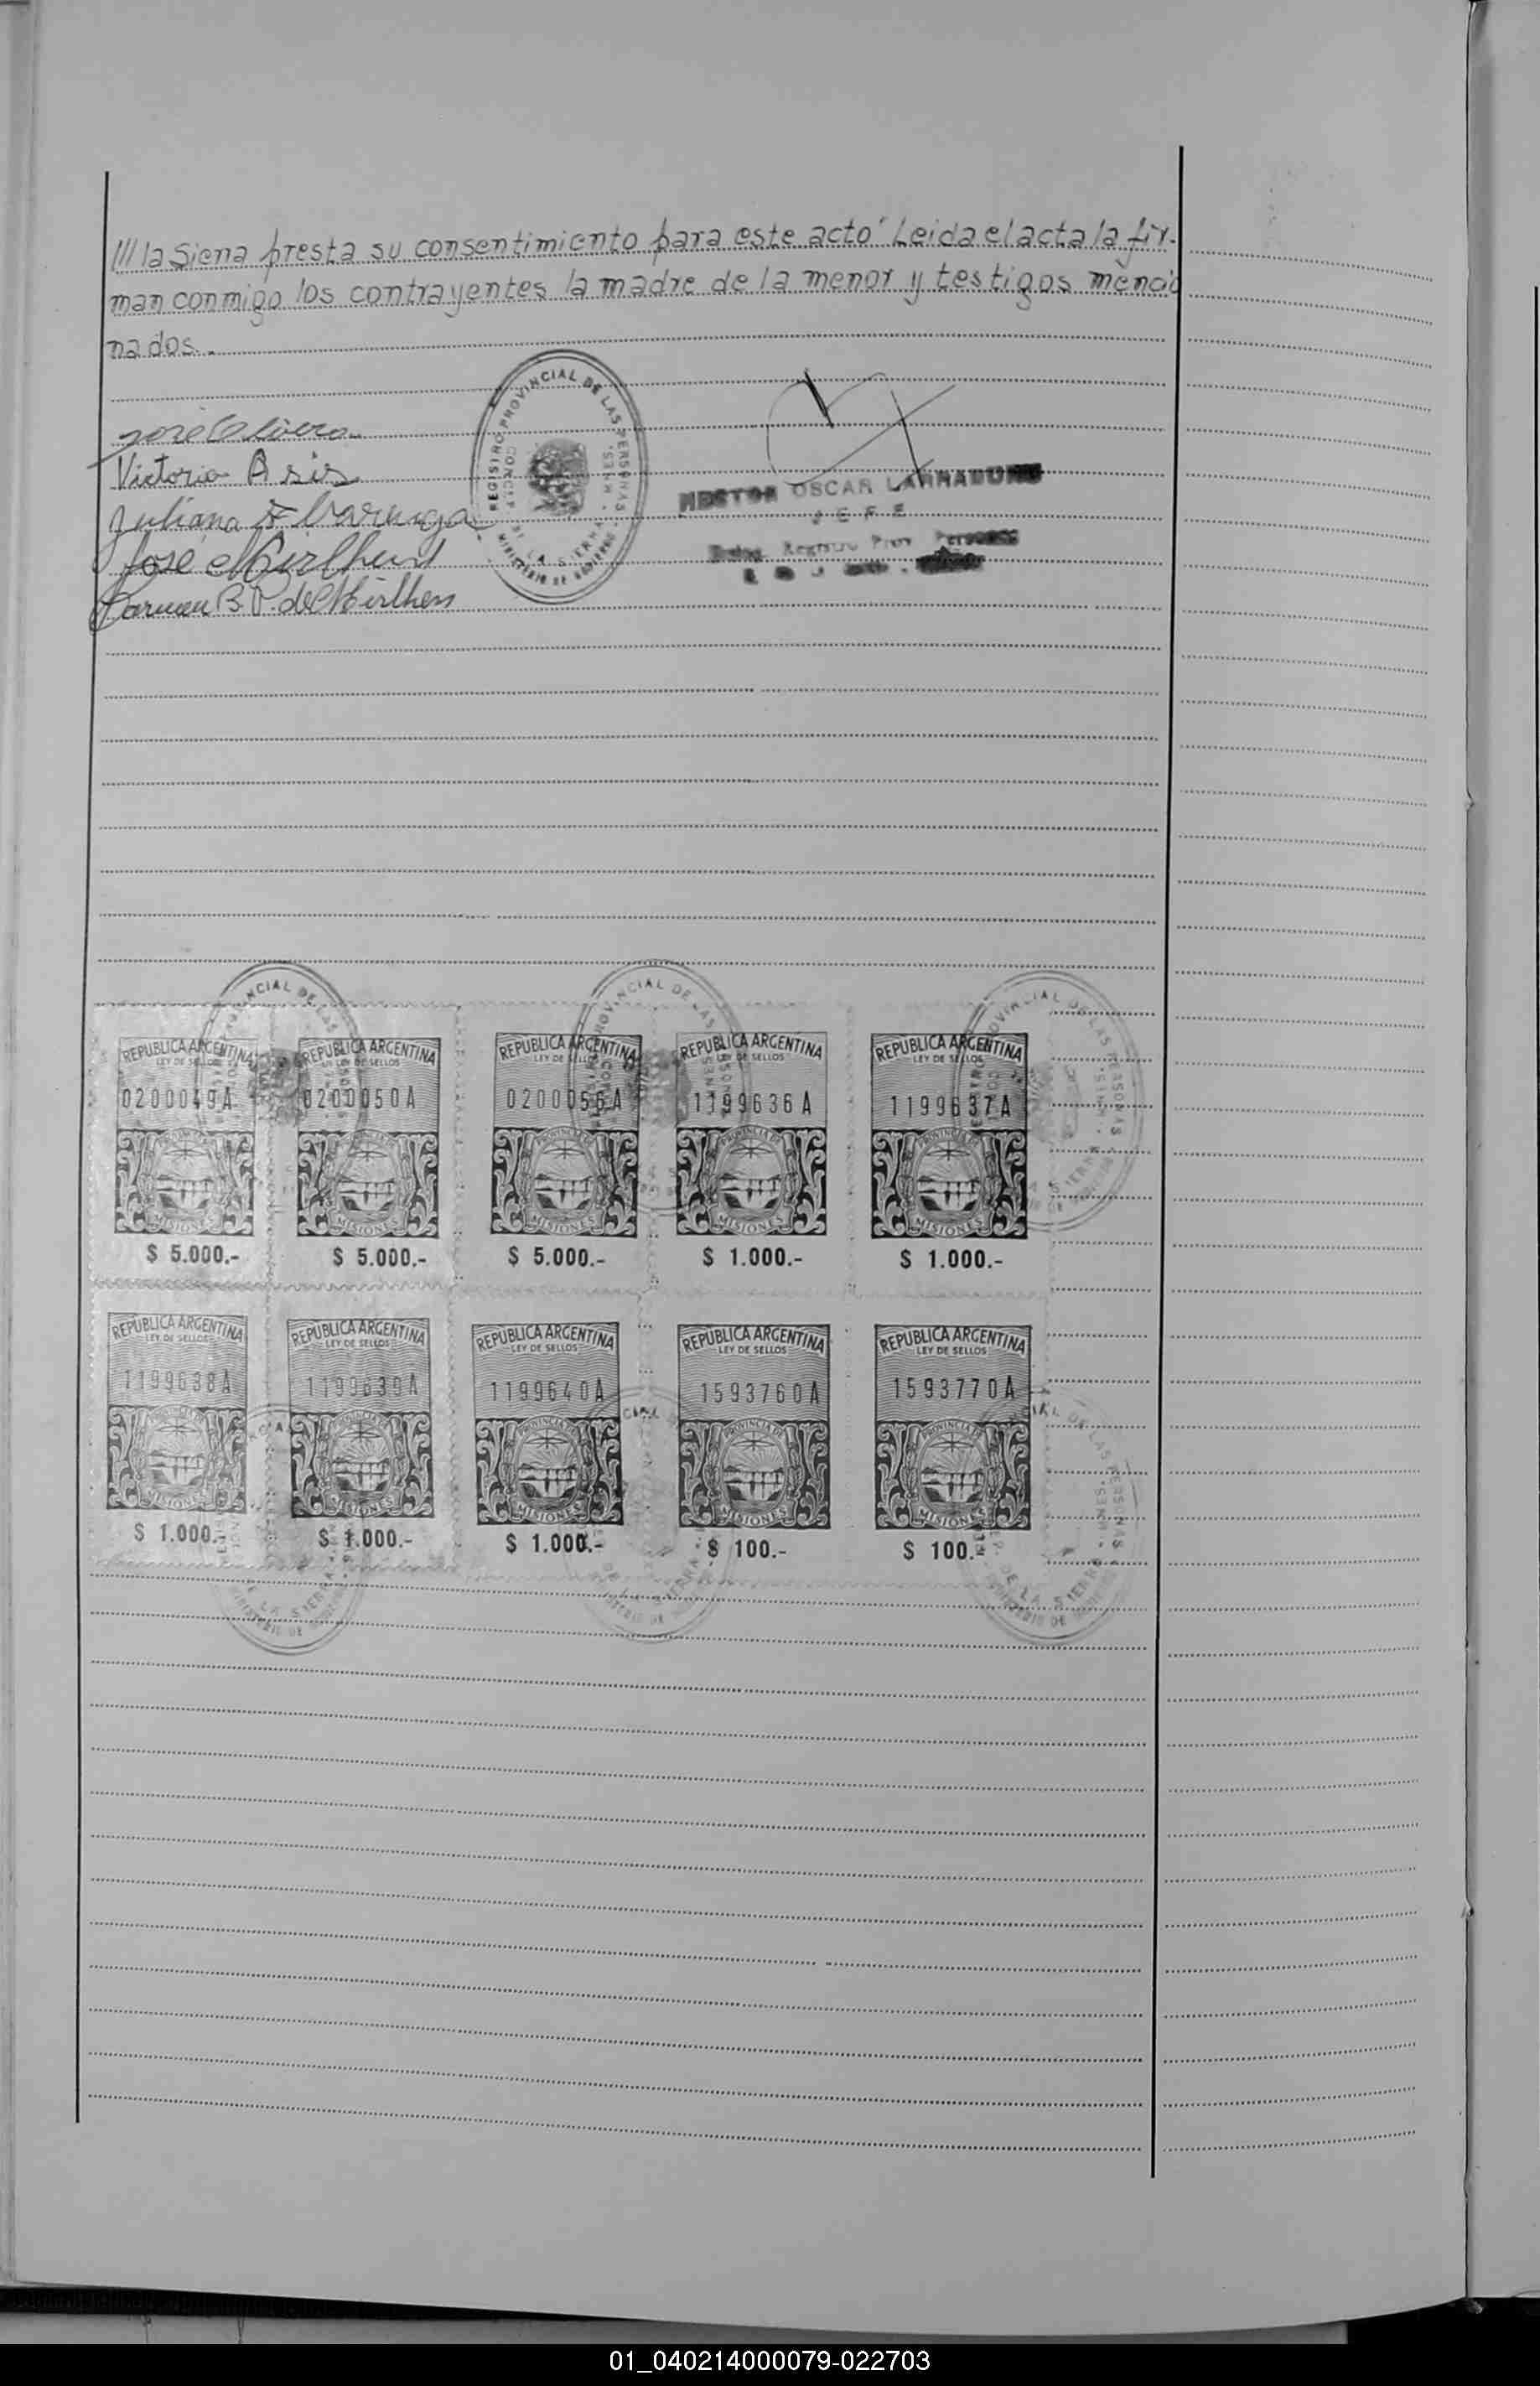 /// la Siena presta su consentimiento para este acto' Leida el acta la fir-
man conmigo los contrayentes la madre de la menor y testigos mencio
nados.-
José Olivera
Victoria Asis
Juliana
José Mirlhens
Carmen B. P. de Mirlhens
REGISTRO PROVINCIAL DE LAS PERSONAS
CONCEP. DE LA SIERRA - MNES.
MINISTERIO DE GOBIERNO
NESTOR OSCAR
JEFE
Registro Prov. Personas
REPUBLICA ARGENTINA
LEY DE SELLOS
0200049A
PROVINCIA DE
MISIONES
$ 5.000.-
REPUBLICA ARGENTINA
LEY DE SELLOS
0200050A
PROVINCIA DE
MISIONES
$ 5.000.-
REPUBLICA ARGENTINA
LEY DE SELLOS
0200056A
PROVINCIA DE
MISIONES
$ 5.000.-
REPUBLICA ARGENTINA
LEY DE SELLOS
1199636A
PROVINCIA DE
MISIONES
$ 1.000.-
REPUBLICA ARGENTINA
LEY DE SELLOS
1199637A
PROVINCIA DE
MISIONES
$ 1.000.-
REPUBLICA ARGENTINA
LEY DE SELLOS
1199638A
PROVINCIA DE
MISIONES
$ 1.000.-
REPUBLICA ARGENTINA
LEY DE SELLOS
1199639A
PROVINCIA DE
MISIONES
$ 1.000.-
REPUBLICA ARGENTINA
LEY DE SELLOS
1199640A
PROVINCIA DE
MISIONES
$ 1.000.-
REPUBLICA ARGENTINA
LEY DE SELLOS
1593760A
PROVINCIA DE
MISIONES
$ 100.-
REPUBLICA ARGENTINA
LEY DE SELLOS
1593770A
PROVINCIA DE
MISIONES
$ 100.-
01_040214000079-022703